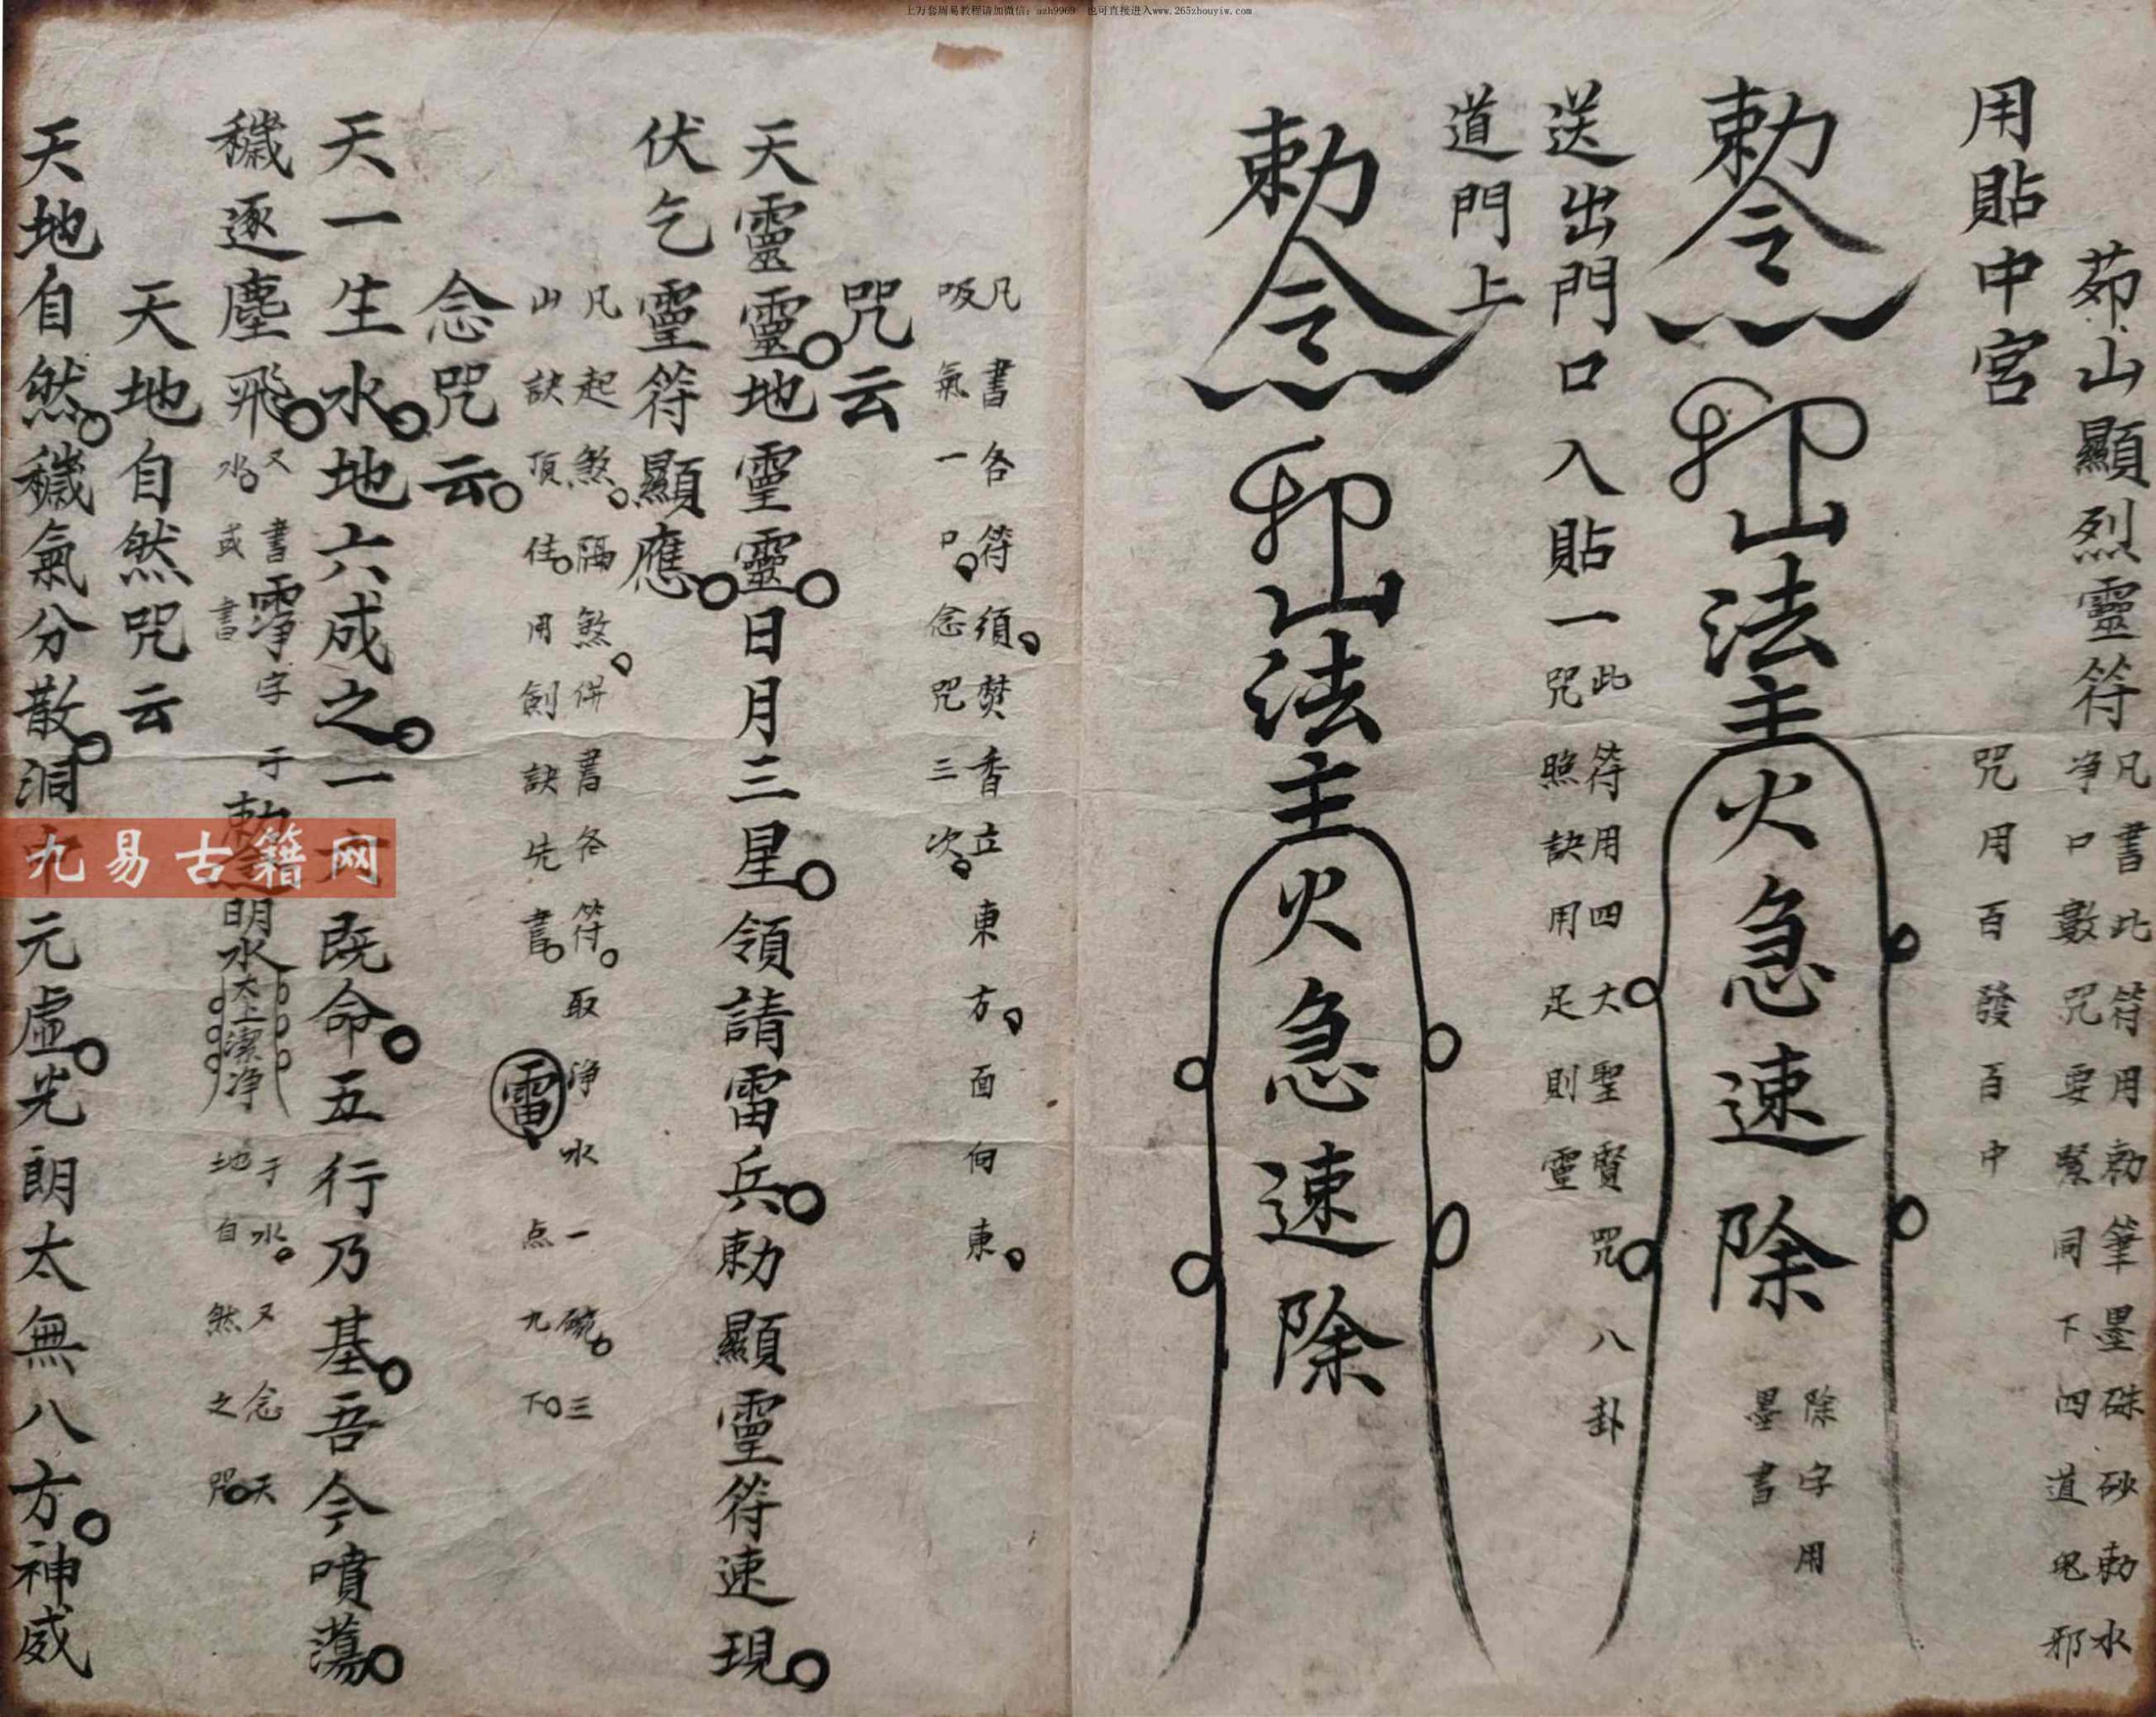 上万套周易教程请加微信：azh9969 也可直接进入www.265zhouyiw.com
茆山顯烈靈符
凡書此符用勅筆墨硃砂勅水
净口數咒要緊同下四道鬼邪
用貼中宮
咒用百發百中
勅令
山法主火急速除
除字用
墨書
送出門口入貼一
此符用四大聖賢咒八卦
咒照訣用足則靈
道門上
勅令
山法主火急速除
凡書各符須焚香立東方面向東
吸氣一口念咒三次
咒云
天靈靈地靈靈日月三星領請雷兵勅顯靈符速現
伏乞靈符顯應
凡起煞隔煞併書各符取淨水一碗三
山訣頂住用劍訣先書雷点九下
念咒云
天一生水地六成之一六既命五行乃基吾今噴蕩
穢逐塵飛
又書淨字于勅令明水太上潔净于水又念天
水或書地自然之咒
天地自然咒云
天地自然穢氣分散洞中元虛光朗太無八方神威
九易古籍网